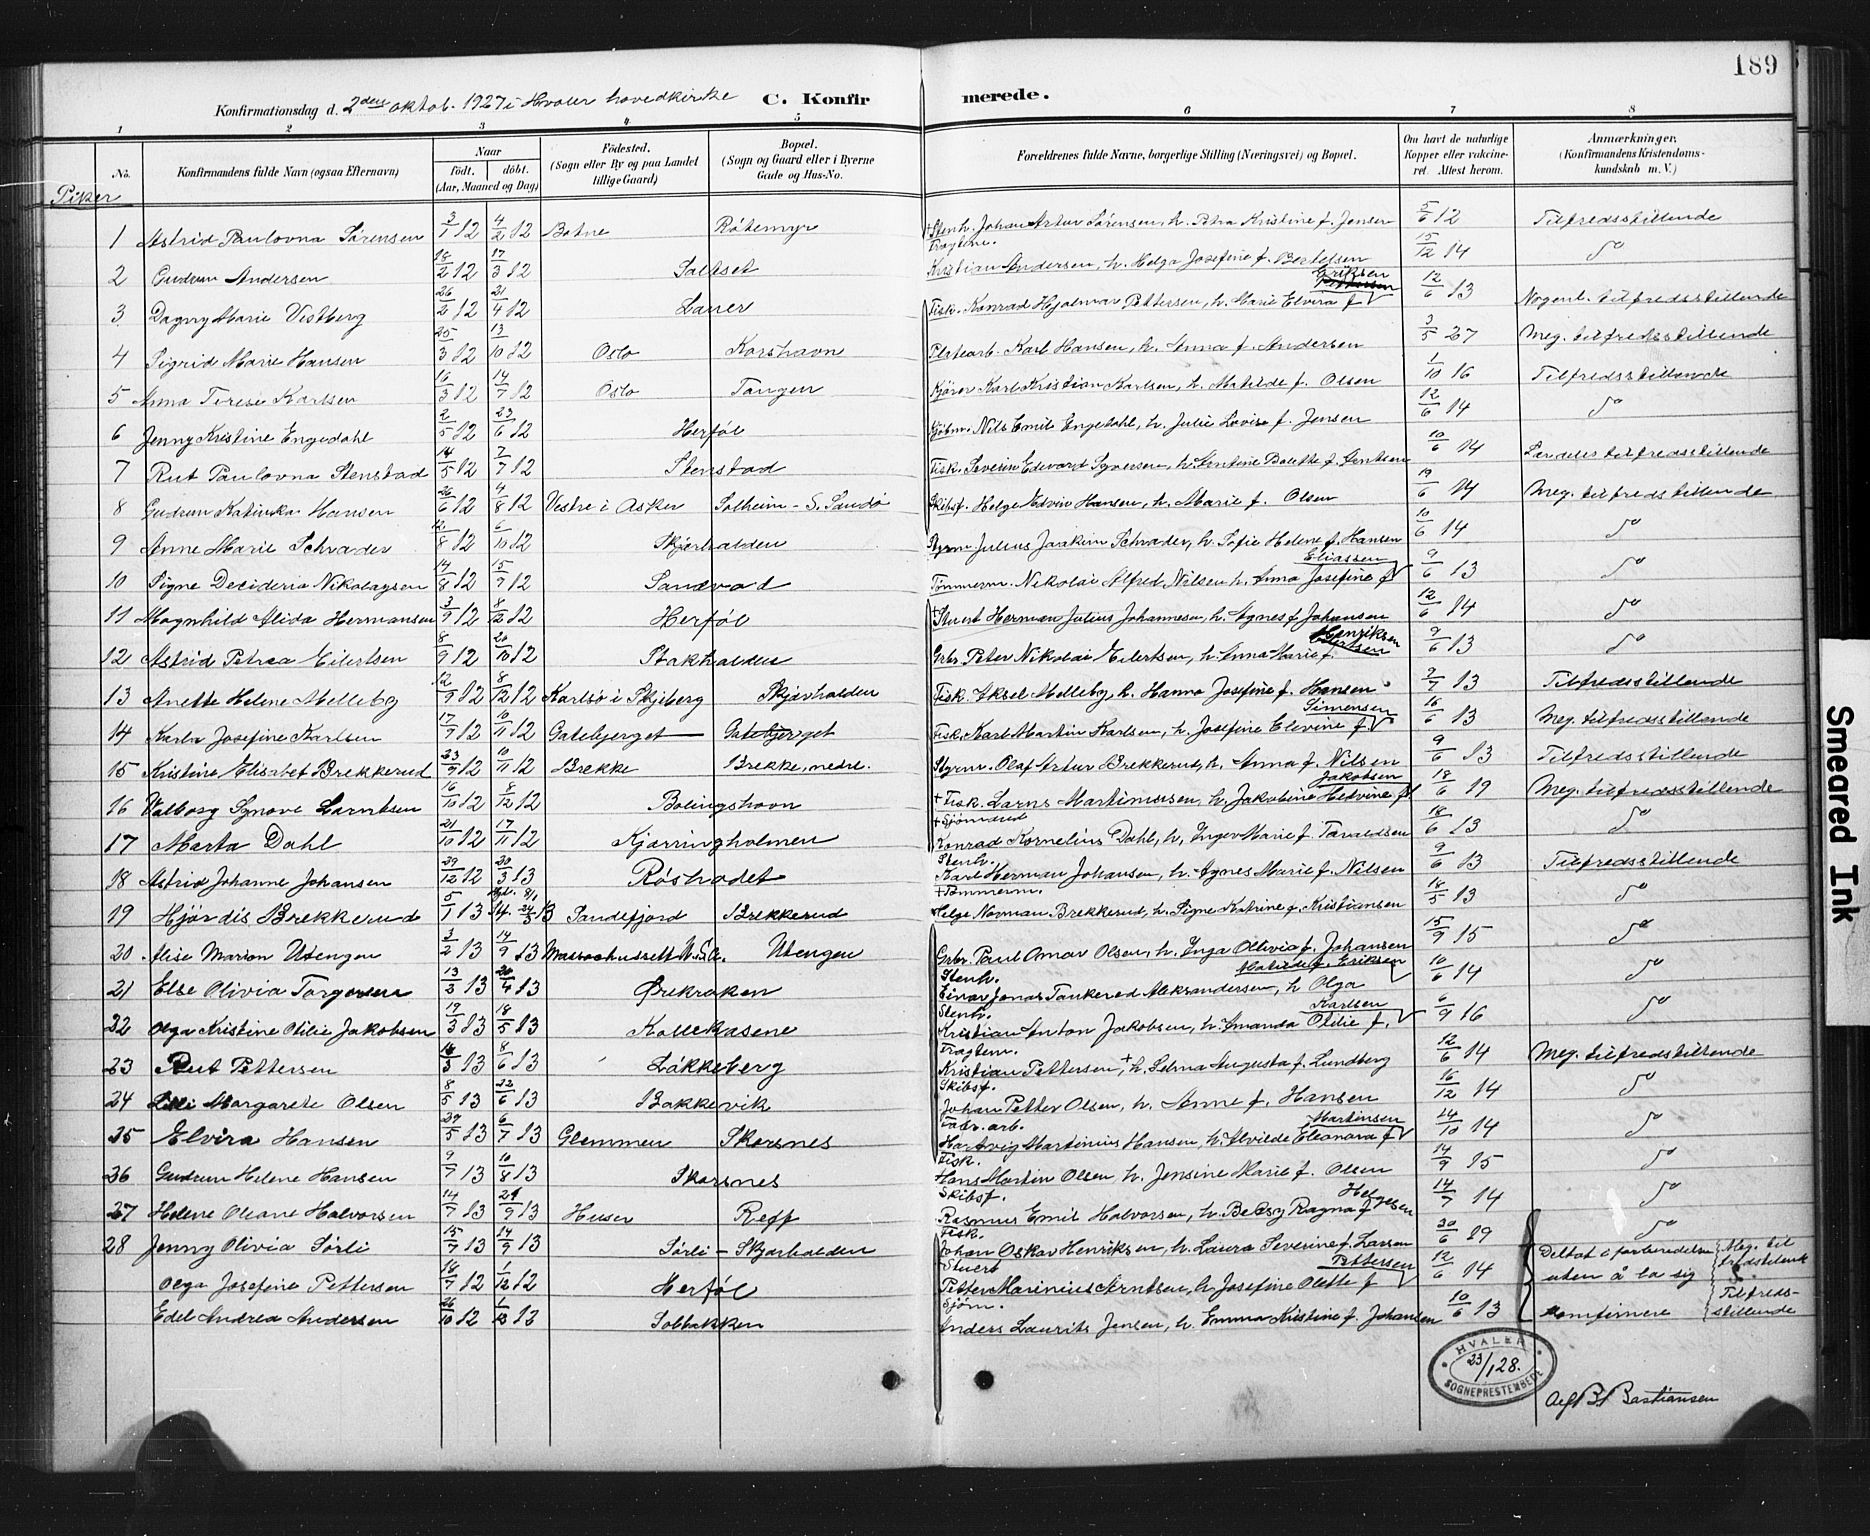 189
Konfirmationsdag d. 2den oktob. 1927 i Hvaler hovedkirke C. Konfirmerede.
1 2 3 4 5 6 7 8
No. Konfirmandens fulde Navn (ogsaa Efternavn) Naar født. døbt. (Aar, Maaned og Dag) Födested. (Sogn eller By og paa Landet tillige Gaard) Bopæl. (Sogn og Gaard eller i Byerne Gade og Hus-No. Forældrenes fulde Navne, borgerlige Stilling (Næringsvei) og Bopæl. Om havt de naturlige Kopper eller vakcineret. Attest herom. Anmærkninger. (Konfirmandens Kristendomskundskab m. V.)
Piker
1 Astrid Paulovna Sørensen 3/1 12 4/2 12 Botne Røtemyr + Stenh. Johan Artur Sørensen, h. Petra Kristine f. Jensen 5/6 12 Tilfredsstillende
2 Gudrun Andersen 18/2 12 17/3 12 Saltset Fragtem. Kristian Andersen, h. Helga Josefine f. Bertelsen 15/12 14 do
3 Dagny Marie Vestberg 26/2 12 21/4 12 Lauer Fisk. Konrad Hjalmar Pettersen, h. Marie Elvira f. Eriksen 12/6 13 Nogenl. tilfredsstillende
4 Sigrid Marie Hansen 25/3 12 13/10 12 Oslo Korshavn Platearb. Karl Hansen, h. Anna f. Andersen 3/5 27 Meg. tilfredsstillende
5 Anna Terese Karlsen 16/3 12 14/7 12 Oslo Tangen Kjører Karl Kristian Karlsen, h. Matilde f. Olsen 1/10 16 Tilfredsstillende
6 Jenny Kristine Engedahl 2/5 12 23/6 12 Herføl Gjøbm. Nils Emil Engedahl, h. Julie Lovise f. Jensen 12/6 14 do
7 Rut Paulovna Stenstad 14/5 12 7/7 12 Stenstad Fisk. Severin Edvard Syversen, h. Antine Bolette f. Arntsen 10/6 14 Særdeles tilfredsstillende
8 Gudrun Katinka Hansen 26/6 12 4/8 12 Vestre i Asker Solheim - S. Sandø Skibsf. Helge Edvin Hansen, h. Marie f. Olsen 19/6 14 Meg. tilfredsstillende
9 Anne Marie Schrader 12/8 12 6/10 12 Skjærhalden Styrm Julius Joakim Schrader, h. Sofie Helene f. Hansen 10/6 14 do
10 Signe Desideria Nikolaysen 14/8 12 15/9 12 Sandvad Tømmerm. Nikolai Alfred Nilsen h. Anna Josefine f. Eliassen 9/6 13 do
11 Magnhild Alida Hermansen 3/9 12 8/12 12 Herføl + Stuert Herman Julius Johannesen, h. Agnes f. Johansen 12/6 14 do
12 Astrid Petrea Eilertsen 8/9 12 20/10 12 Stokhalden Grbr. Peter Nikolai Eilertsen, h. Anna Marie f. Henriksen 9/6 13 do
13 Anette Helene Melleby 12/9 12 8/12 12 Karlsø i Skjeberg Skjærhalden Fisk. Aksel Melleby, h. Hanna Josefine f. Hansen 9/7 13 Tilfredsstillende
14 Karla Josefine Karlsen 17/9 12 10/11 12 Gatebjerget Gatebjerget Fisk. Karl Martin Karlsen, h. Josefine Elevine f. Simensen 16/6 13 Meg. tilfredsstillende
15 Kristine Elisabet Brekkerud 23/9 12 10/11 12 Brekke Brekke, nedre. Styrm. Olaf Artur Brekkerud, h. Anna f. Nilsen 9/6 13 Tilfredsstillende
16 Valborg Synøve Larntsen 16/10 12 8/12 12 Bølingshavn + Fisk. Larns Martinusen, h. Jakobine Hedvine f. Jakobsen 18/6 19 Meg. tilfredsstillende
17 Marta Dahl 21/10 12 17/11 12 Kjærringholmen + Sjømand Konrad Kornelius Dahl, h. Inger Marie f. Taraldsen 18/6 13 do
18 Astrid Johanne Johansen 29/12 12 20/3 13 Røshodet Stenh. Karl Herman Johansen, h. Agnes Marie f. Nilsen 9/6 13 Tilfredsstillende
19 Hjørdis Brekkerud 5/1 13 24/3 13 Sandefjord Brekkerud + Tømmerm. Helge Norman Brekkerud, h. Signe Katrine f. Kristiansen 18/5 13 do
20 Alise Marion Utengen 3/2 13 14/9 13 Massachusett U.S.A. Utengen Grbr. Paul Omar Olsen, h. Inga Ollivia f. Johansen 15/9 15 do
21 Else Olivia Torgersen 13/3 13 20/4 13 Ørekroken Stenh. Einar Jonas Tankered Aleksandersen, h Olga Matilde f. Eriksen 10/6 14 do
22 Olga Kristine Otilie Jakobsen 19/3 13 18/5 13 Kollekasene Stenh. Kristian Anton Jakobsen, h. Amanda Otilie f. Karlsen 6/9 16 do
23 Rut Pettersen 16/3 13 8/6 13 Løkkeberg Fragtem. Kristian Pettersen, + h. Selma Augusta f. Lundberg 12/6 14 Meg. tilfredsstillende
24 Lilli Margarete Olsen 8/5 13 22/6 13 Bakkevik Skibsf. Johan Petter Olsen, h. Anne f. Hansen 16/12 14 do
25 Elvira Hansen 29/5 13 6/7 13 Glemmen Skorsnes Fabr. arb. Hartvig Martinius Hansen, h. Alvilde Eleonora f. Martinsen 14/10 14 do
26 Gudrun Helene Hansen 9/7 13 10/8 13 Skorsnes Fisk. Hans Martin Olsen, h. Jensine Marie f. Olsen 14/9 15 do
27 Helene Oleane Halvorsen 14/7 13 29/9 13 Huser Reff Skibsf. Rasmus Emil Halvorsen, h. Betsy Ragna f. Helgesen 14/7 14 do
28 Jenny Olivia Sørli 15/7 13 14/9 13 Sørli - Skjærhalden Fisk. Johan Oskar Henriksen, h. Laura Severine f. Larsen 20/6 19 do
Olga Josefine Pettersen 18/7 12 1/12 12 Herføl + Stuert Petter Marinius Arntsen, h. Josefine Olette f. Pettersen 12/6 14 Deltat i forberedelsen uten å la sig Meg. tilfredsstillende
Edel Andrea Andersen 26/10 12 1/12 13 Solbakken Sjøm. Anders Laurits Jensen, h. Emma Kristine f. Johansen 10/6 13 konfirmere Tilfredsstillende
HVALER 23/1 28. SOGNEPRESTEMBEDE
Alf B. Bastiansen
Smeared Ink